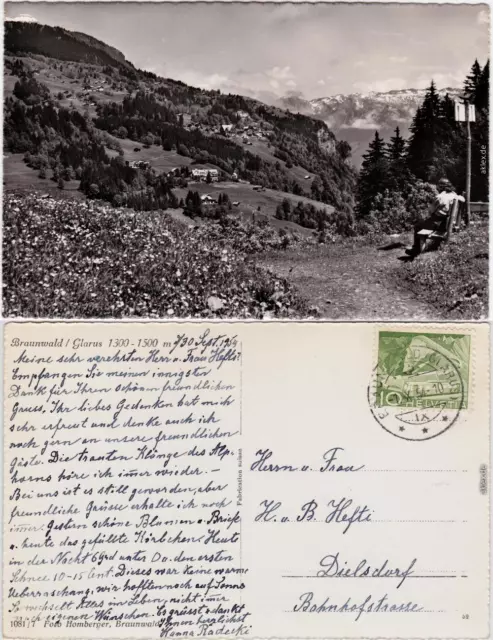 aklex.de
Braunwald / Glarus 1300-1500 m
30 Sept. 1954
Meine sehr verehrten Herr u. Frau Hefti!
Empfangen Sie meinen innigsten
Dank für Ihren schönen freundlichen
Gruss, Ihr liebes Gedenken hat mich
sehr erfreut und denke auch ich
noch gern an unsere freundlichen
Gäste. Die trauten Klänge des Alp-
horns höre ich immer wieder. –
Bei uns ist es still geworden, aber
freundliche Grüsse erhalte ich noch
immer. Gestern schöne Blumen u. Briefe
u. heute das gefüllte Körbchen. Heute
in der Nacht Grad unter 0 u. den ersten
Schnee 10-15 Cent. Dieses war keine warme
Ueberraschung, wir hofften noch auf Sonne
So wechselt Alles im Leben, nicht immer
nach eigenen Wünschen. Es grüsst u. dankt
Ihnen herzlichst
Hanna Radecki
1081/7 Foto Homberger, Braunwald
Fabrikation suisse
HELVETIA
10
IX
Herrn u. Frau
H. u. B. Hefti
Dielsdorf
Bahnhofstrasse
aklex.de